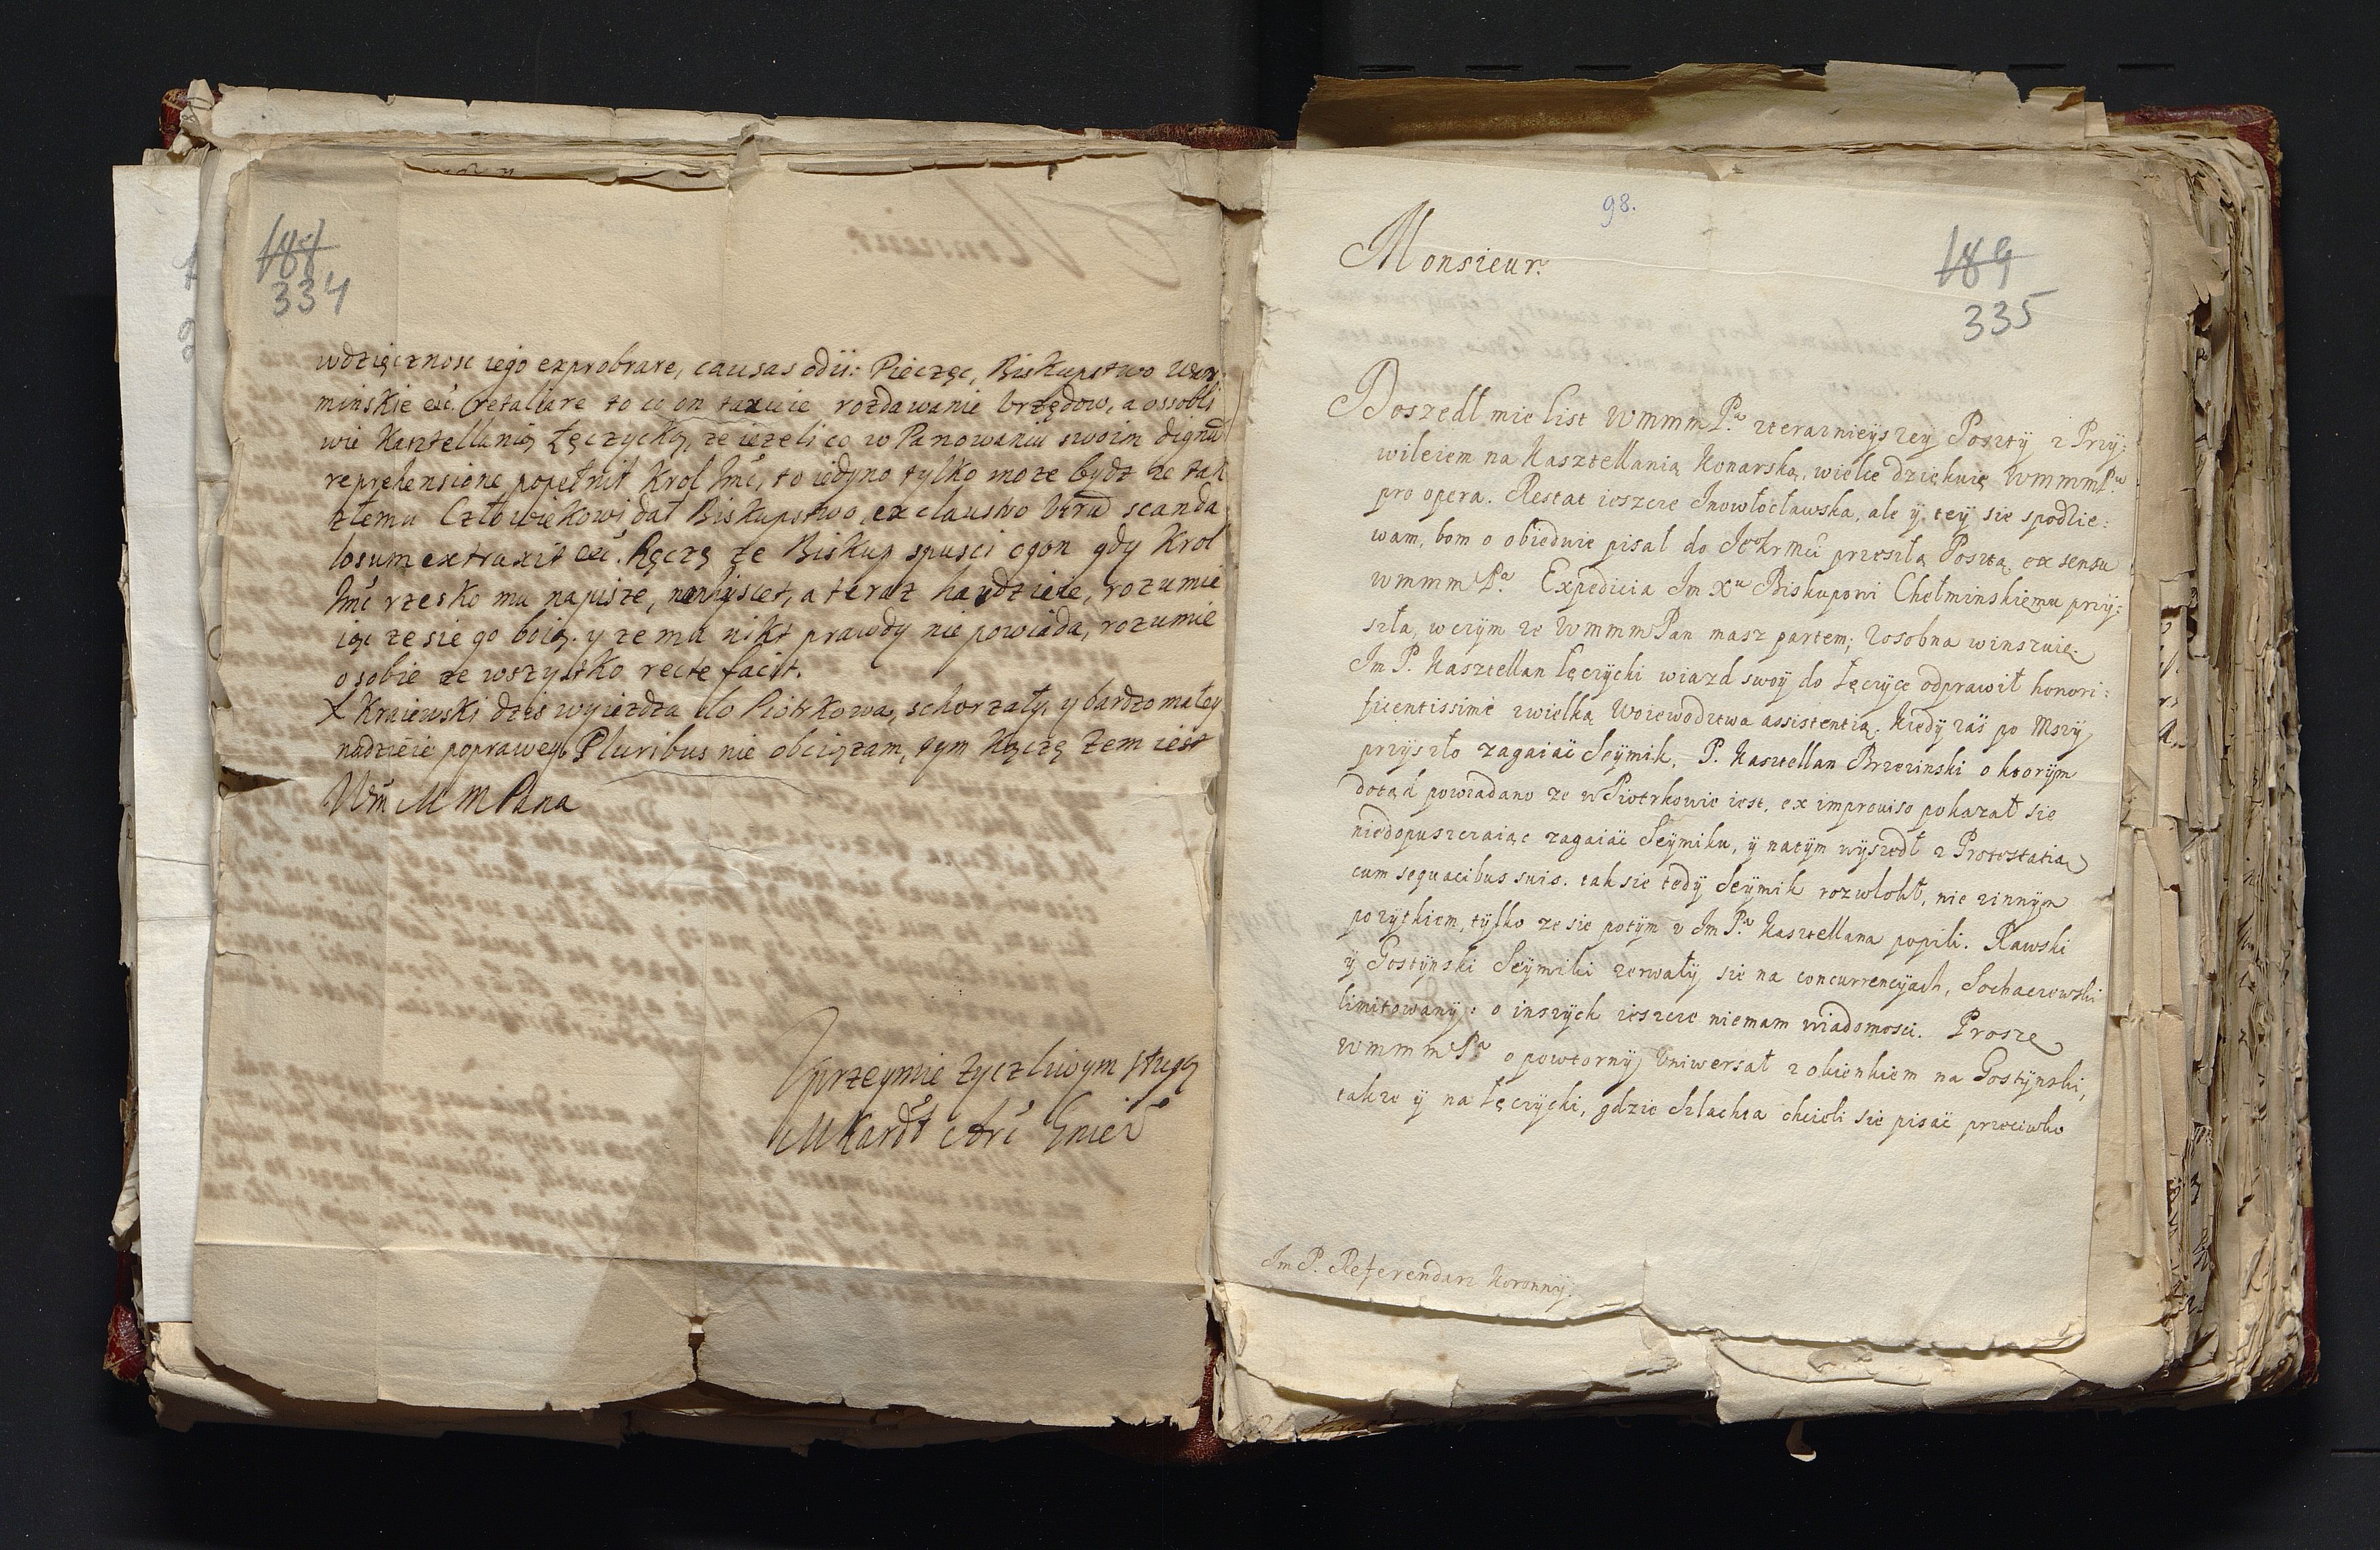 188
334
wdzięcznosc iego exprobrare, causas odii: Pieczęc, Biskupstwo War
minskie etc. retaliare to co on taxuie rozdawanie Vrzędow, a ossobli
wie Kasztellanią Łęczycką, ze iezeli co w Panowaniu swoim dignū
reprehensione popełnił Krol Jmć, to iedyno tylko moze bydz ze tak
złemu Człowiekowi dał Biskupstwo, ex claustro Virū scanda
losum extraxit etc. Ręczę ze Biskup spusci ogon gdy Krol
Jmć rzesko mu napisze, a teraz hardzieie, rozumie
iąc ze sie go boią. y ze mu nikt prawdy nie powiada, rozumie
o sobie ze wszystko recte facit.
X Kraiewski dzis wyiezdza do Piotrkowa, schorzały, y bardzo małey
nadzieie poprawey. Pluribus nie obciązam, tym kączę żem iest
Wm M M Pana
Uprzeymie zyczliwym sługą
MKardł Arć Gnieź
98.
189
335
Monsieur.
Doszedł mie list WmmmPa. zteraznieyszey Poszty z Przy:
wileiem na Kasztellanią Konarską, wielce dziękuię WmmmPu.
pro opera. Restat ieszcze Inowłocławska, ale ÿ tey sie spodzie:
wam, bom o obiedwie pisał do JeoKrMci przeszłą Posztą ex sensu
WmmmPa. Expedicia Jm Xu Biskupowi Chełminskiemu przy:
szła, w czym ze WmmmPan masz partem; zosobna winszuię.
Jm P. Kasztellan Łęczycki wiazd swoÿ do Łęczyce odprawił honori:
ficentissimè zwielką Woiewodztwa assistentią. Kiedy zaś po Mszÿ
przyszło zagaiać Seymik, P. Kasztellan Brzezinski o ktorÿm
dotąd powiadano ze w Piotrkowie iest, ex improuiso pokazał sie
niedopuszczaiąc zagaiać Seymiku, ÿ natÿm wyszedł z Protestatią
cum sequacibus suis. tak sie tedÿ Seymik rozwlokł, nie zinnÿm
pozytkiem, tÿlko ze sie potÿm v Jm Pa. Kasztellana popili. Rawski
ÿ Gostynski Seymiki zerwałÿ sie na concurrencÿach, Sochaczewski
limitowanÿ: o inszÿch ieszcze niemam wiadomosci. Proszę
WmmmPa o powtornÿ Vniwersał z okienkiem na Gostÿnski,
takze ÿ na Łęczycki, gdzie Szlachta chcieli sie pisać przeciwko
Jm P. Referendarz Koronnÿ.